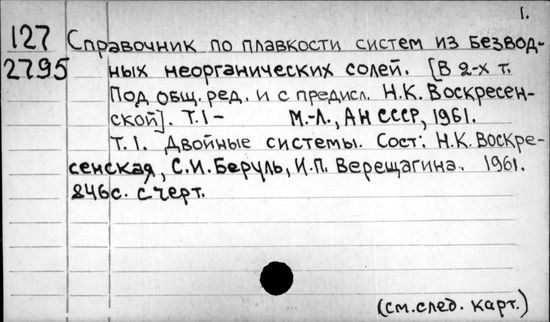 1.
127 Справочник по плавкости систем из безвод-
2795 ных неорганических солей. [В 2-х т.
Под общ. ред. и с предисл. Н.К. Воскресен-
ской]. Т.1- М.-Л., АН СССР, 1961.
Т.1. Двойные системы. Сост: Н.К. Воскре-
сенская, С.И. Беруль, И.П. Верещагина. 1961.
846с. с черт.
(см. след. карт.)